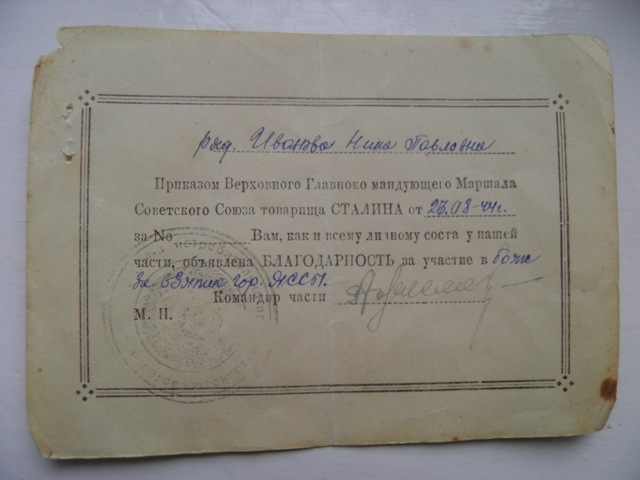 ряд. Иванова Нина Павловна
Приказом Верховного Главноко мандующего Маршала
Советского Союза товарища СТАЛИНА от 23.08-44г.
за No ............ Вам, как и всему личному соста у нашей
части, объявлена БЛАГОДАРНОСТЬ за участие в боях
за взятие гор. ЯССЫ.
Командир части
М. П.